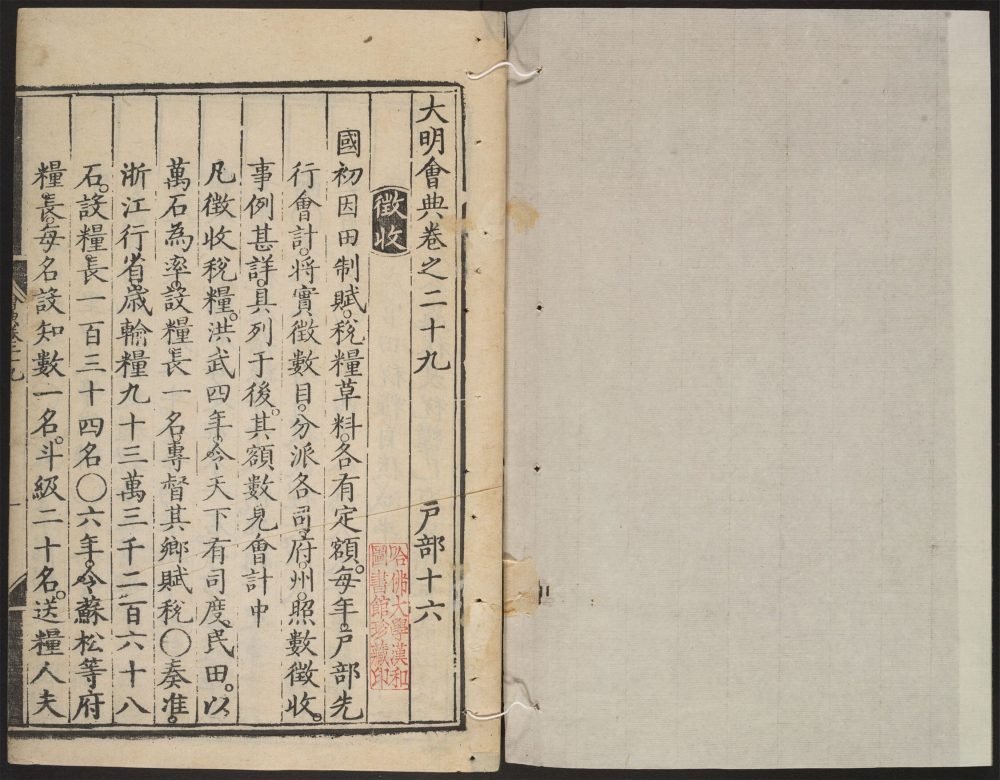 大明會典卷之二十九 戶部十六
徵收
國初因田制賦。稅糧草料。各有定額。每年。戶部先
行會計。將實徵數目。分派各司府。州。照數徵收。
事例甚詳。具列于後。其額數見會計中
凡徵收稅糧。洪武四年。令天下有司度民田。以
萬石為率。設糧長一名。專督其鄉賦稅〇奏准。
浙江行省。歲輸糧九十三萬三千二百六十八
石。設糧長一百三十四名〇六年。令蘇松等府
糧長。每名設知數一名。斗級二十名。送糧人夫
哈佛大學漢和
圖書館珍藏印